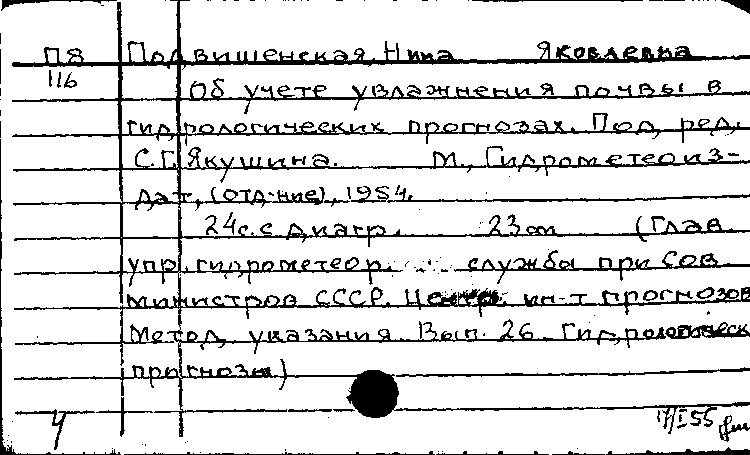 П8 Подвишенская, Нина Яковлевна
116
Об учете увлажнения почвы в
гидрологических прогнозах. Под ред.
С.Г. Якушина. М., Гидрометеоиз-
дат, (отд-ние), 1954.
24с. с диагр. 23см (Глав.
упр. гидрометеор. службы при Сов.
министров СССР. Центр. ин-т прогнозов
Метод. указания. Вып. 26. Гидрологическ
прогнозы)
4 17/I 55